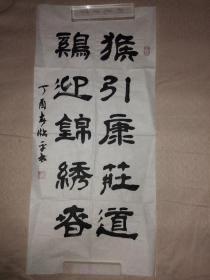 猴引康莊道
鷄迎錦綉春
丁酉春